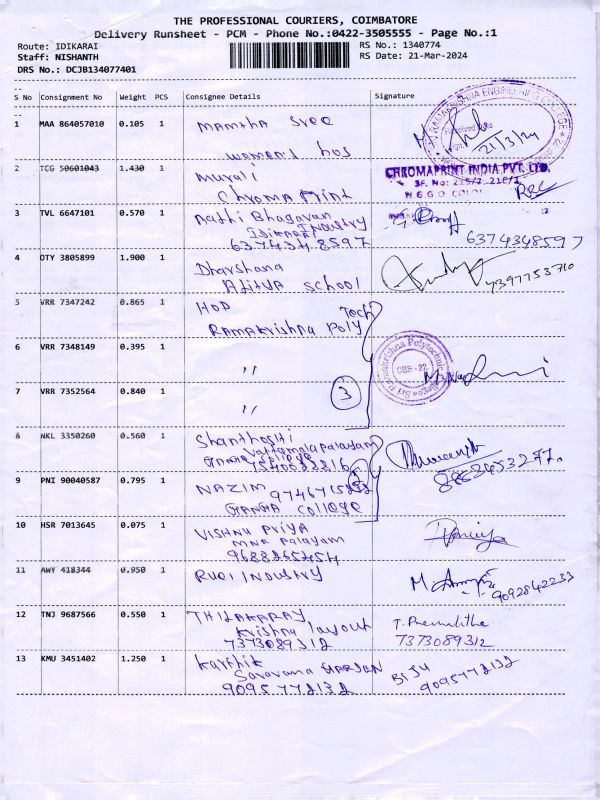 THE PROFESSIONAL COURIERS, COIMBATORE
Delivery Runsheet - PCM - Phone No.:0422-3505555 - Page No.:1
Route: IDIKARAI
RS No.: 1340774
Staff: NISHANTH
RS Date: 21-Mar-2024
DRS No.: DCJB134077401
S No Consignment No Weight PCS Consignee Details Signature
1 MAA 864057010 0.105 1 Mamtha Sree
women's hos
21/3/24
2 TCG 50601043 1.430 1 Murali
Chroma Print
CHROMAPRINT INDIA PVT. LTD.
3 TVL 6647101 0.570 1 Aathi Bhagavan
Industry
Idikarai
6374348597
6374348597
4 OTY 3805899 1.900 1 Dharshana
Aditya School
7397753710
5 VRR 7347242 0.865 1 HOD
Ramakrishna Poly Tech
6 VRR 7348149 0.395 1 ,,
7 VRR 7352564 0.840 1 ,,
3
8 NKL 3350260 0.560 1 Shanthoshi
Vattamalapalayam
9 PNI 90040587 0.795 1 NAZIM
Ganga College
10 HSR 7013645 0.075 1 Vishnu Priya
MNR Palayam
11 AWY 418344 0.950 1 Industry
9092842233
12 TNJ 9687566 0.550 1 THILAKARAJ
Krishna layout
7373089312
T. Premalatha
7373089312
13 KMU 3451402 1.250 1 Karthik
Saravana Garden
9095772132
BIJU
9095772132